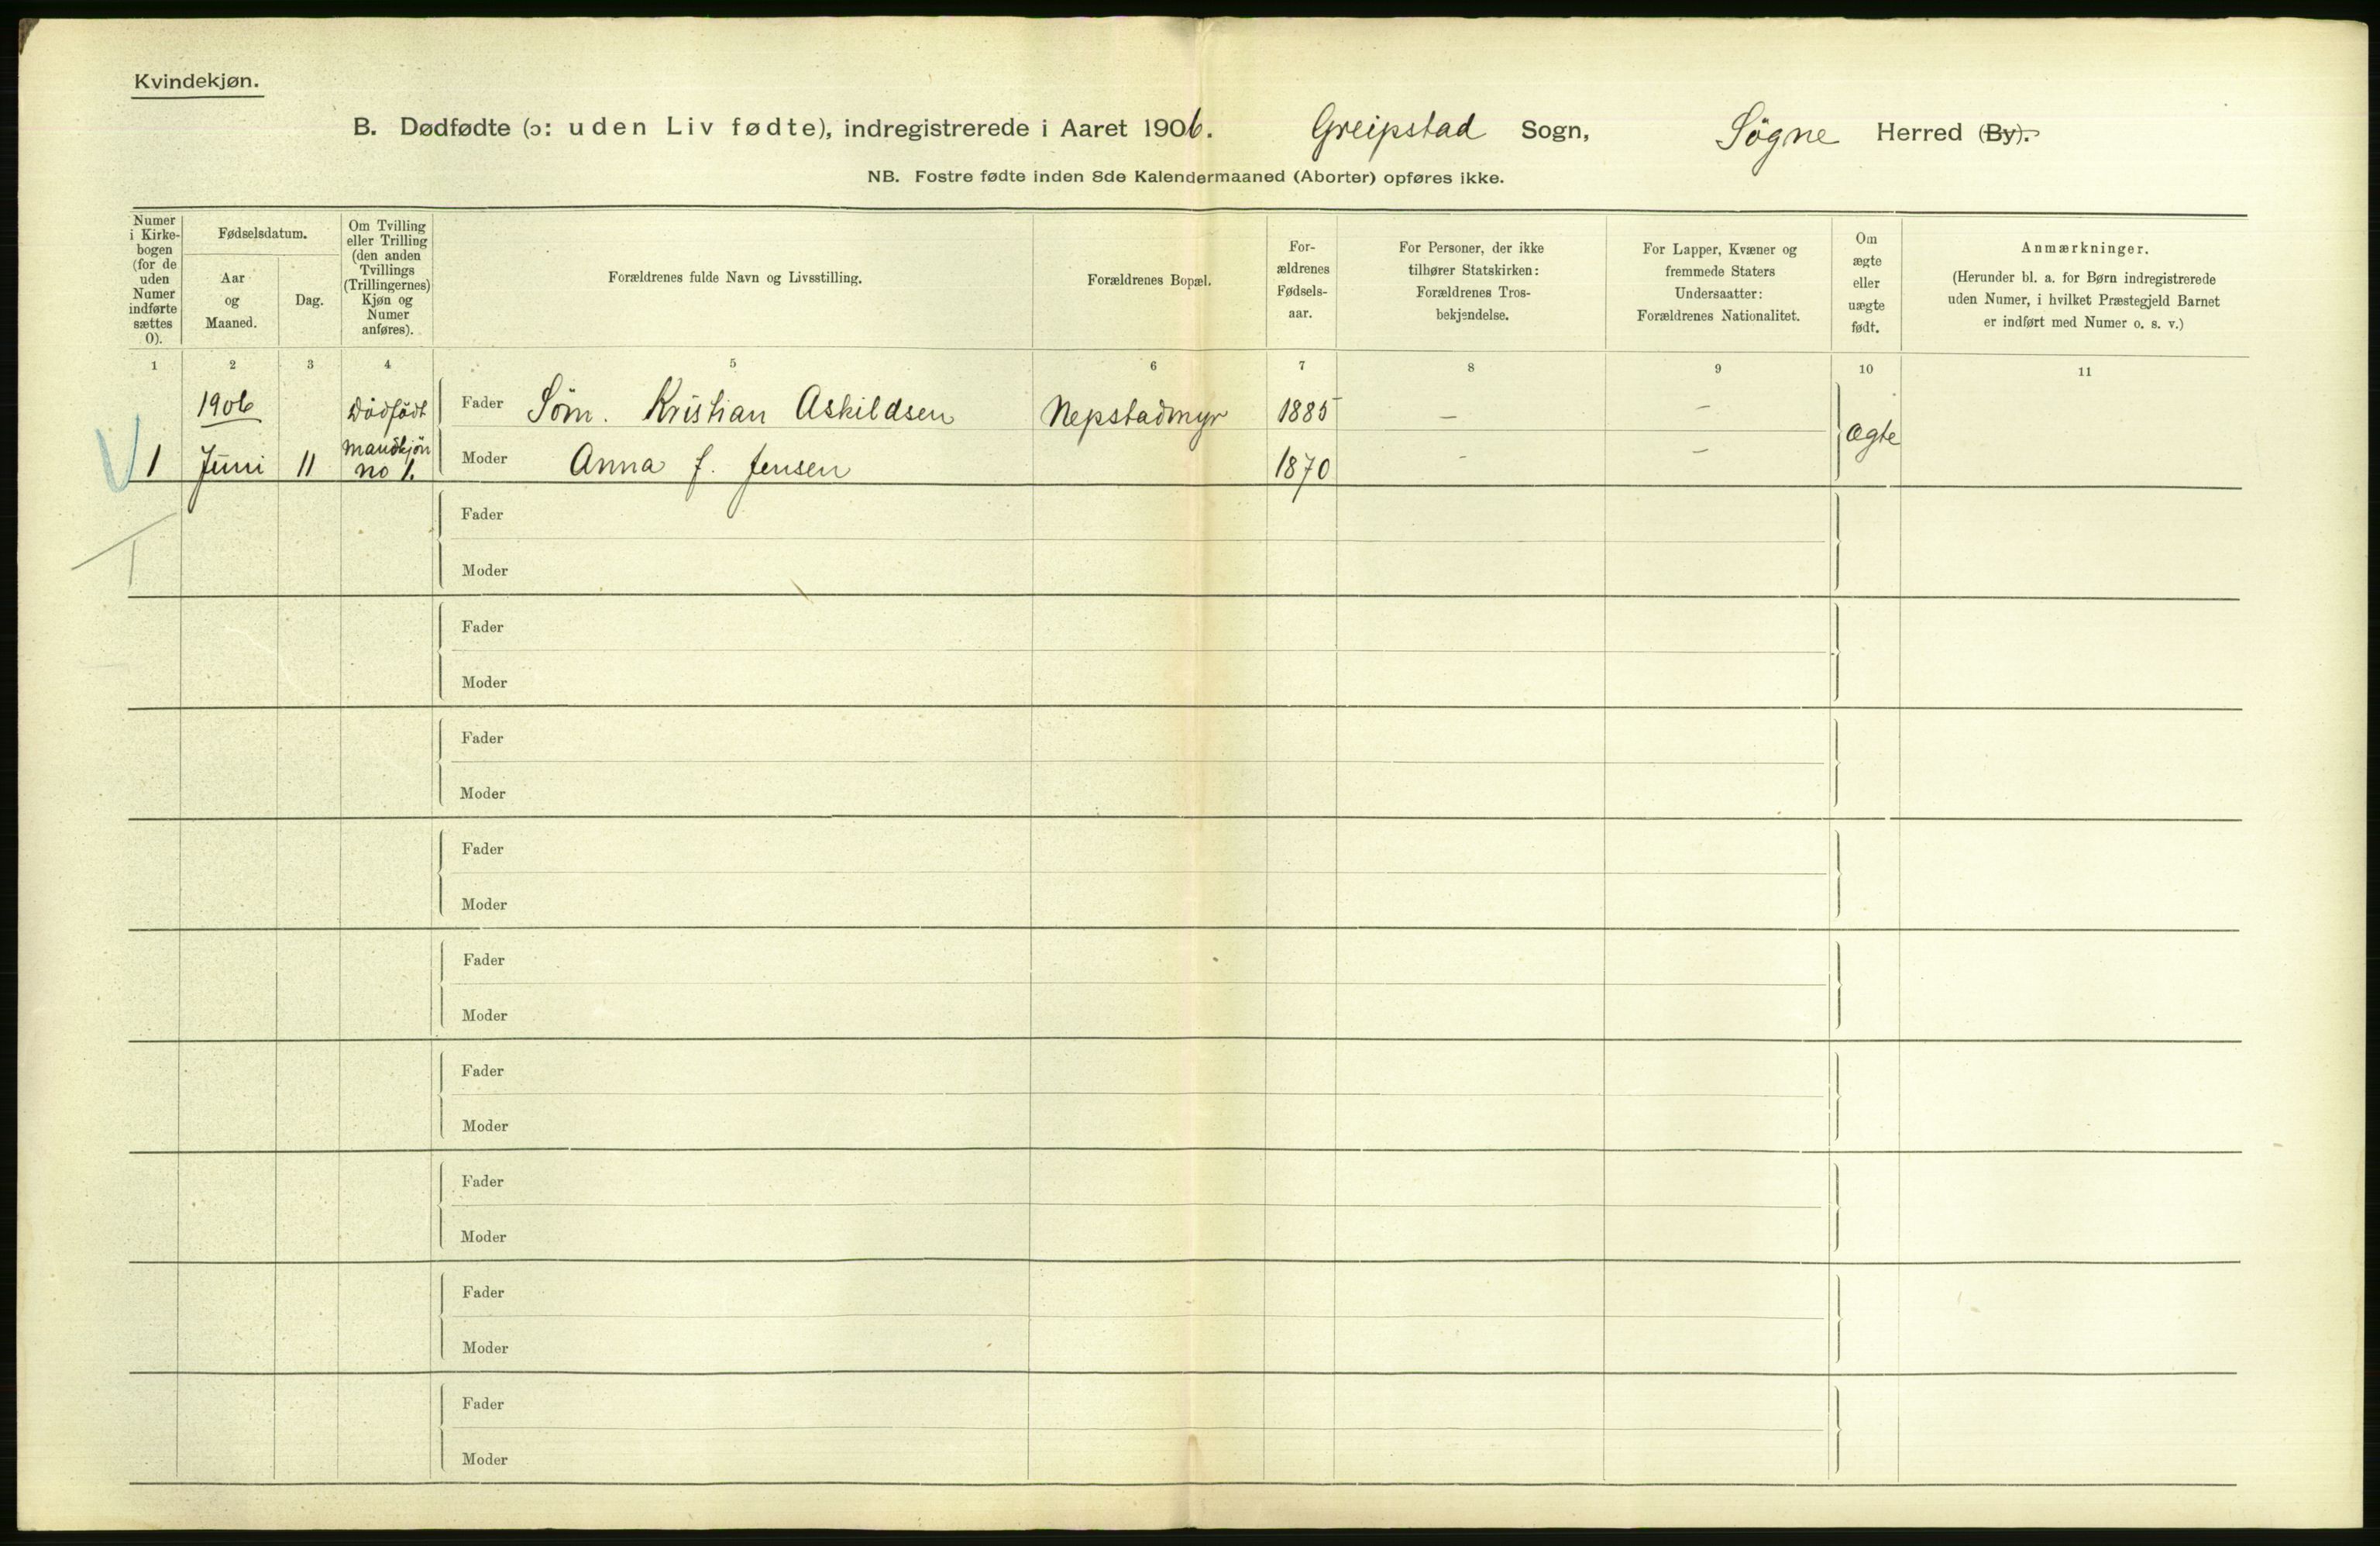 Kvindekjøn.
B. Dødfødte (ɔ: uden Liv fødte), indregistrerede i Aaret 1906. Greipstad Sogn, Søgne Herred (By).
NB. Fostre fødte inden 8de Kalendermaaned (Aborter) opføres ikke.
Numer
i Kirke-
bogen
(for de
uden
Numer
indførte
sættes
0).
Fødselsdatum.
Aar
og
Maaned.
Dag.
Om Tvilling
eller Trilling
(den anden
Tvillings
(Trillingernes)
Kjøn og
Numer
anføres).
Forældrenes fulde Navn og Livsstilling.
Forældrenes Bopæl.
For-
ældrenes
Fødsels-
aar.
For Personer, der ikke
tilhører Statskirken:
Forældrenes Tros-
bekjendelse.
For Lapper, Kvæner og
fremmede Staters
Undersaatter:
Forældrenes Nationalitet.
Om
ægte
eller
uægte
født.
Anmærkninger.
(Herunder bl. a. for Børn indregistrerede
uden Numer, i hvilket Præstegjeld Barnet
er indført med Numer o. s. v.)
1 2 3 4 5 6 7 8 9 10 11
1906 Dødfødt Fader Søm. Kristian Askildsen Nepstadmyr 1885 – –
Mandkjøn
1 Juni 11 no 1. Moder Anna f. Jensen 1870 – – Ægte
Fader
Moder
Fader
Moder
Fader
Moder
Fader
Moder
Fader
Moder
Fader
Moder
Fader
Moder
Fader
Moder
Fader
Moder